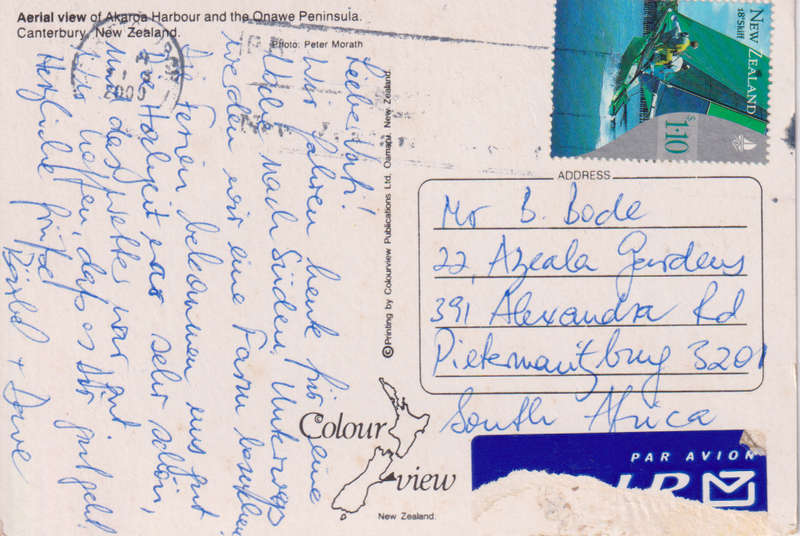 Aerial view of Akaroa Harbour and the Onawe Peninsula.
Canterbury, New Zealand.
Photo: Peter Morath
Lieber Vati!
Wir fahren heute für eine
Woche nach Süden. Unterwegs
werden wir eine Farm besuchen.
Ferien bekommen uns gut
Hochzeit war sehr schön,
und das Wetter war gut.
Wir hoffen, daß es Dir gut geht!
Herzliche Grüße
Bärbel + Dave
©Printing by Colourview Publications Ltd. Oamaru, New Zealand.
NEW ZEALAND
18'Skiff
$1.10
ADDRESS
Mr B. Bode
22, Azeala Gardens
391 Alexandra Rd
Pietermaritzburg 3201
South Africa
Colour
view
New Zealand.
PAR AVION